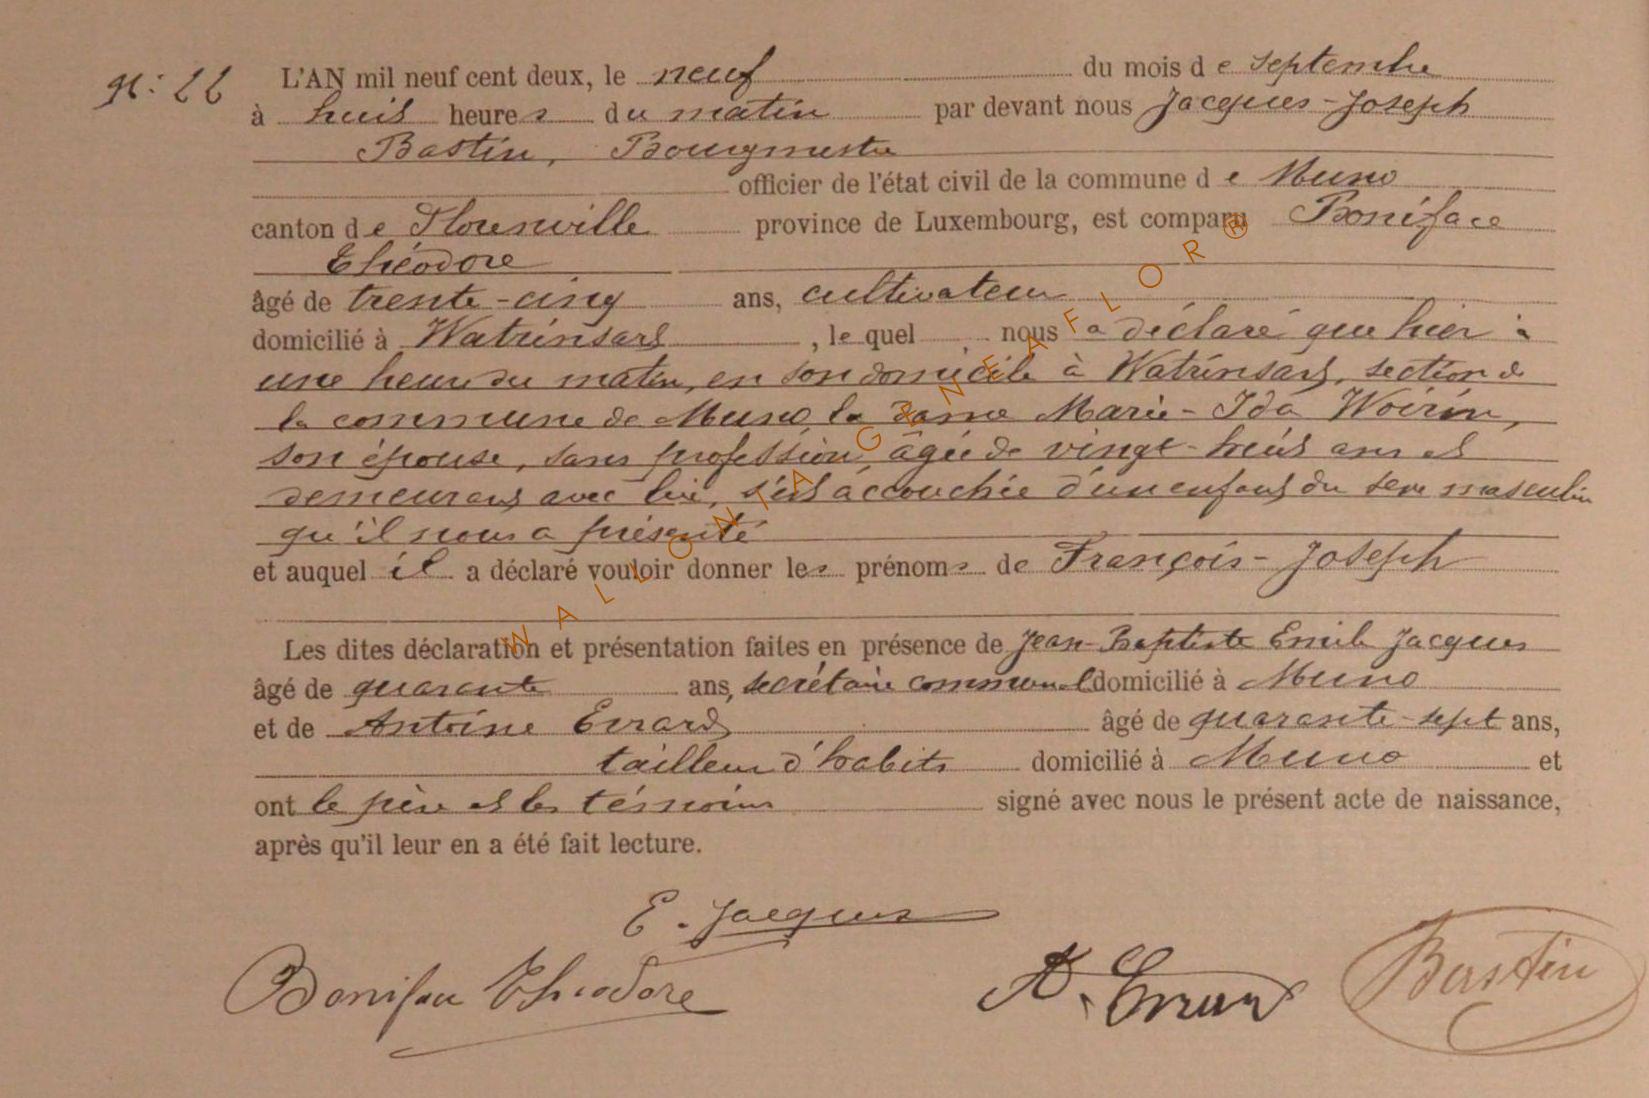 N: 22 L'AN mil neuf cent deux, le neuf du mois de septembre
à huit heures du matin par devant nous Jacques-Joseph
Bastin, Bourgmestre
officier de l'état civil de la commune de Muno
canton de Florenville province de Luxembourg, est comparu Boniface
Théodore
âgé de trente-cinq ans, cultivateur
domicilié à Watrinsart, lequel nous a déclaré que hier à
une heure du matin, en son domicile à Watrinsart, section de
la commune de Muno, la dame Marie-Ida Woirin,
son épouse, sans profession, âgée de vingt-huit ans et
demeurant avec lui, s'est accouchée d'un enfant du sexe masculin
qu'il nous a présenté
et auquel il a déclaré vouloir donner les prénoms de François-Joseph
Les dites déclaration et présentation faites en présence de Jean-Baptiste Emile Jacques
âgé de quarante ans, secrétaire communal domicilié à Muno
et de Antoine Errard âgé de quarante-sept ans,
tailleur d'habits domicilié à Muno et
ont le père et les témoins signé avec nous le présent acte de naissance,
après qu'il leur en a été fait lecture.
E. Jacques
Boniface Théodore A. Errard Bastin
WALLONIA GENEAFLOR®